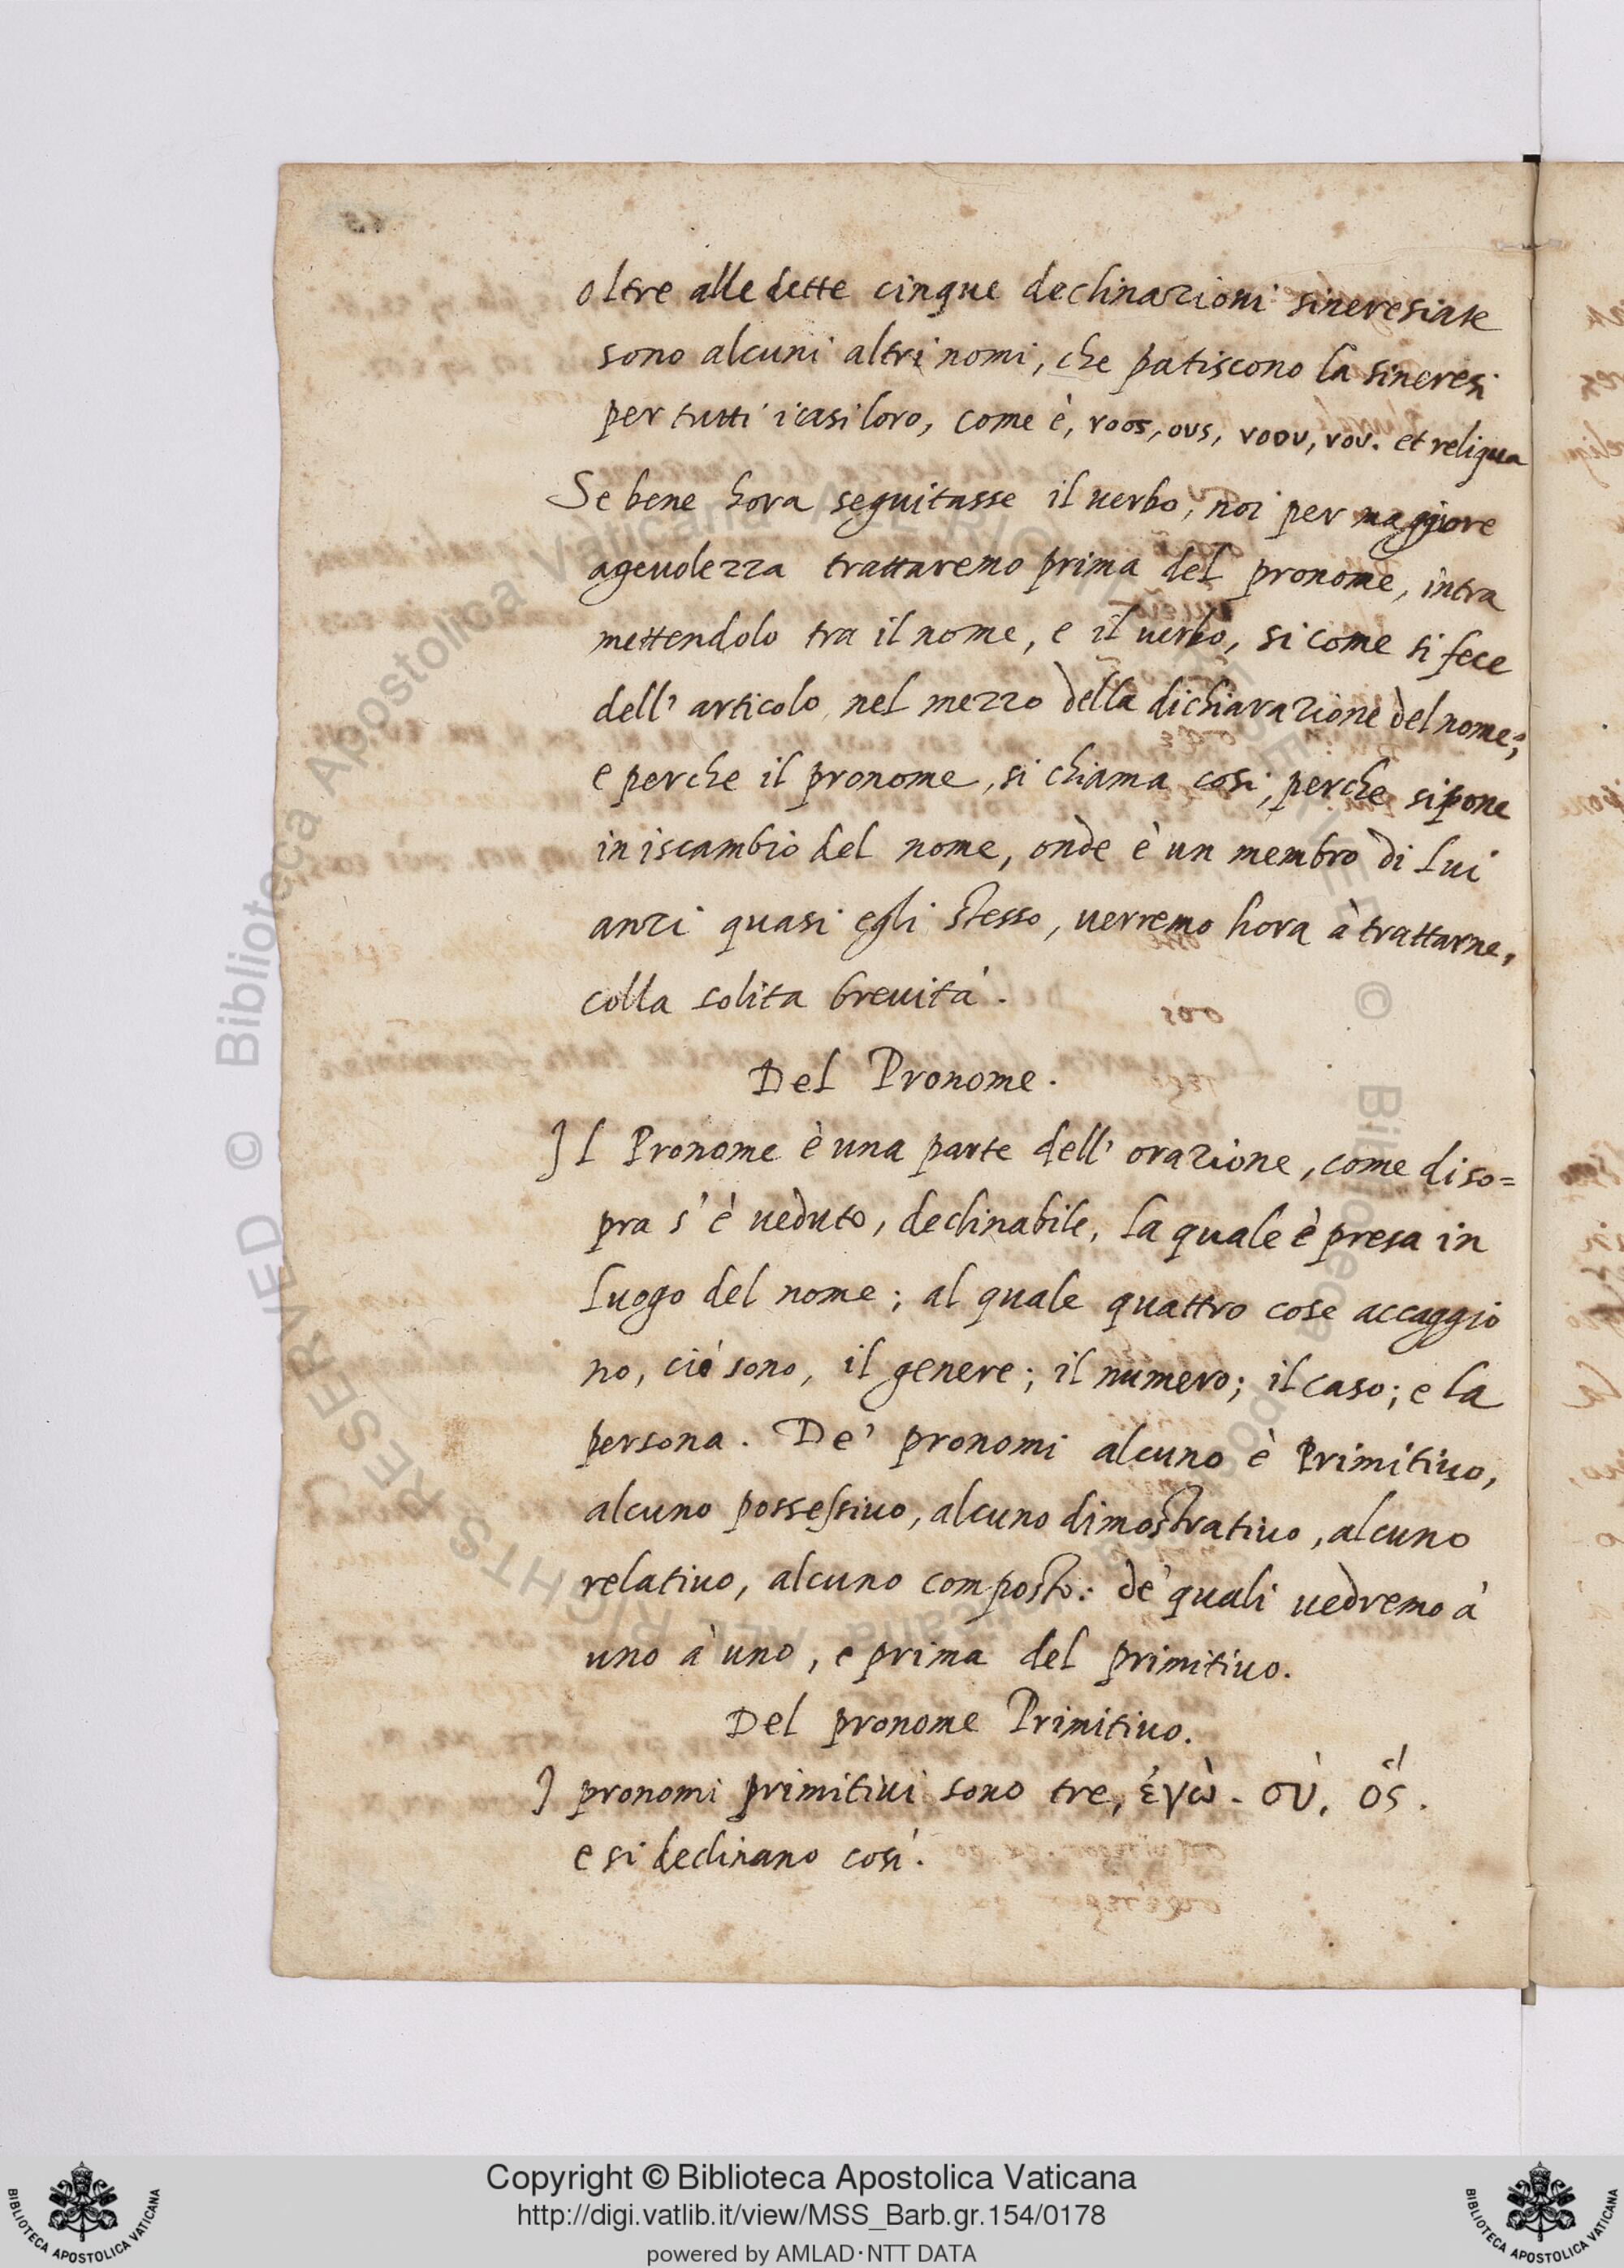 oltre alle dette cinque declinazioni sineresiate
sono alcuni altri nomi, che patiscono la sineresi
per tutti i casi loro, come è, νοος, ους, νοου, νου. et reliqua
Se bene hora seguitasse il uerbo, noi per maggiore
ageuolezza trattaremo prima del pronome, intra
mettendolo tra il nome, e il uerbo, si come si fece
dell' articolo nel mezzo della dichiarazione del nome;
e perche il pronome, si chiama cosi, perche si pone
in iscambio del nome, onde è un membro di lui
anzi quasi egli stesso, uerremo hora à trattarne,
colla solita breuità.
Del Pronome.
Il Pronome è una parte dell' orazione, come di so=
pra s' è ueduto, declinabile, la quale è presa in
luogo del nome; al quale quattro cose accaggio
no, ciò sono, il genere; il numero; il caso; e la
persona. De' pronomi alcuno è Primitiuo,
alcuno possessiuo, alcuno dimostratiuo, alcuno
relatiuo, alcuno composto: de' quali uedremo à
uno à uno, e prima del primitiuo.
Del pronome Primitiuo.
I pronomi primitiui sono tre, ἐγὼ. σὺ. ὅς.
e si declinano così.
© Biblioteca Apostolica Vaticana ALL RIGHTS RESERVED
Copyright © Biblioteca Apostolica Vaticana
http://digi.vatlib.it/view/MSS_Barb.gr.154/0178
powered by AMLAD·NTT DATA
BIBLIOTECA APOSTOLICA VATICANA
BIBLIOTECA APOSTOLICA VATICANA